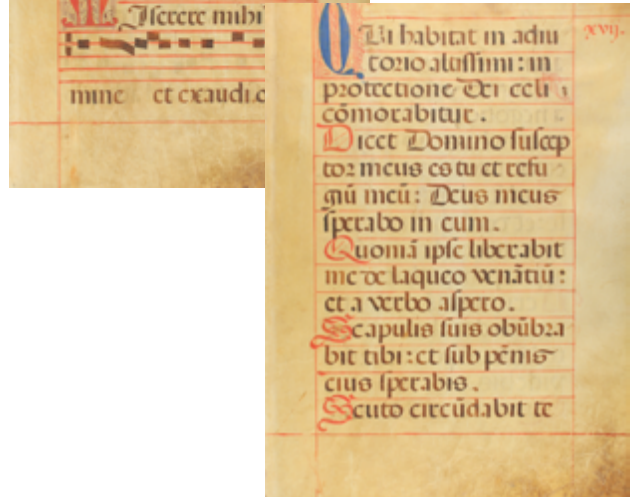 Miserere mihi
mine et exaudi o
xvij.
Qui habitat in adiu
torio altissimi : in
protectione Dei celi
cōmorabitur .
Dicet Domino suscep
tor meus es tu et refu
giū meū : Deus meus
sperabo in eum .
Quoniā ipse liberabit
me de laqueo venātiū :
et a verbo aspero .
Scapulis suis obūbra
bit tibi : et sub pēnis
eius sperabis .
Scuto circūdabit te